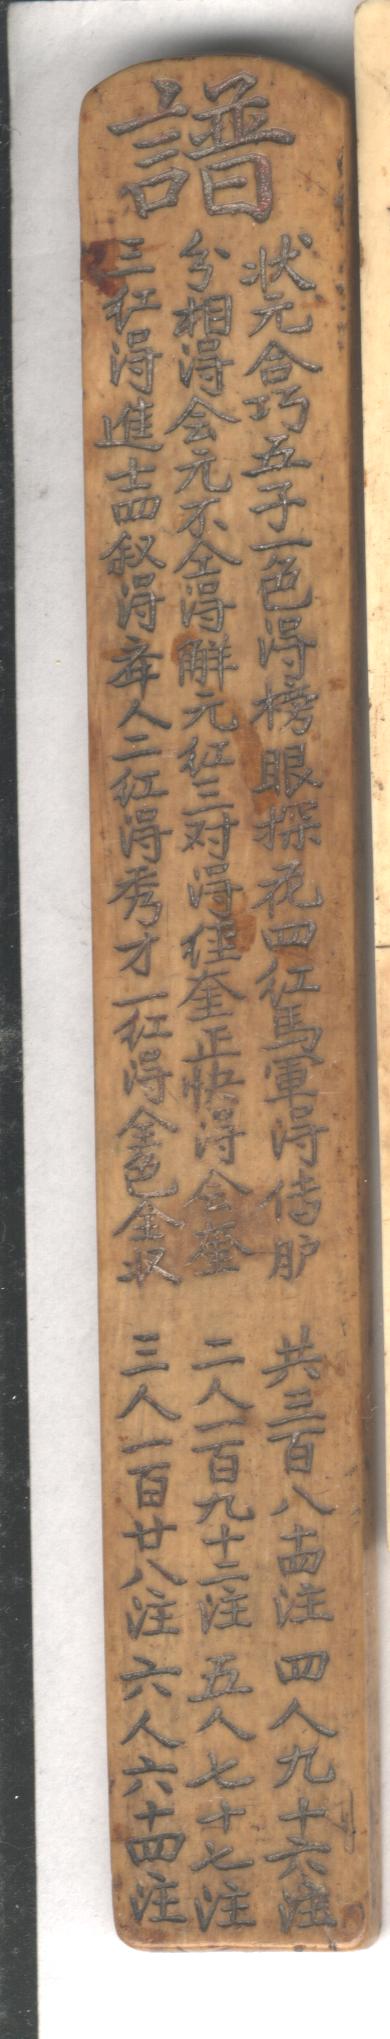 譜
状元合巧五子一色得榜眼探花四红馬軍得传胪 共三百八十四注 四人九十六注
分相得会元不全得解元红三对得经奎正快得会奎 二人一百九十二注 五人七十七注
三红得進士四叙得举人二红得秀才一红得全色全收 三人一百廿八注 六人六十四注